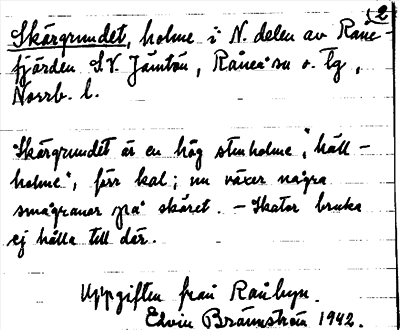 2
Skärgrundet, holme i N. delen av Råne-
fjärden S.V. Jämtön, Råneå sn o. tg,
Norrb. l.
"Skärgrundet är en hög stenholme", "häll-
holme", förr kal; nu växer några
smågranar på skäret. - Skator bruka
ej hålla till där.
Uppgiften från Rånbyn.
Edvin Brännström 1942.